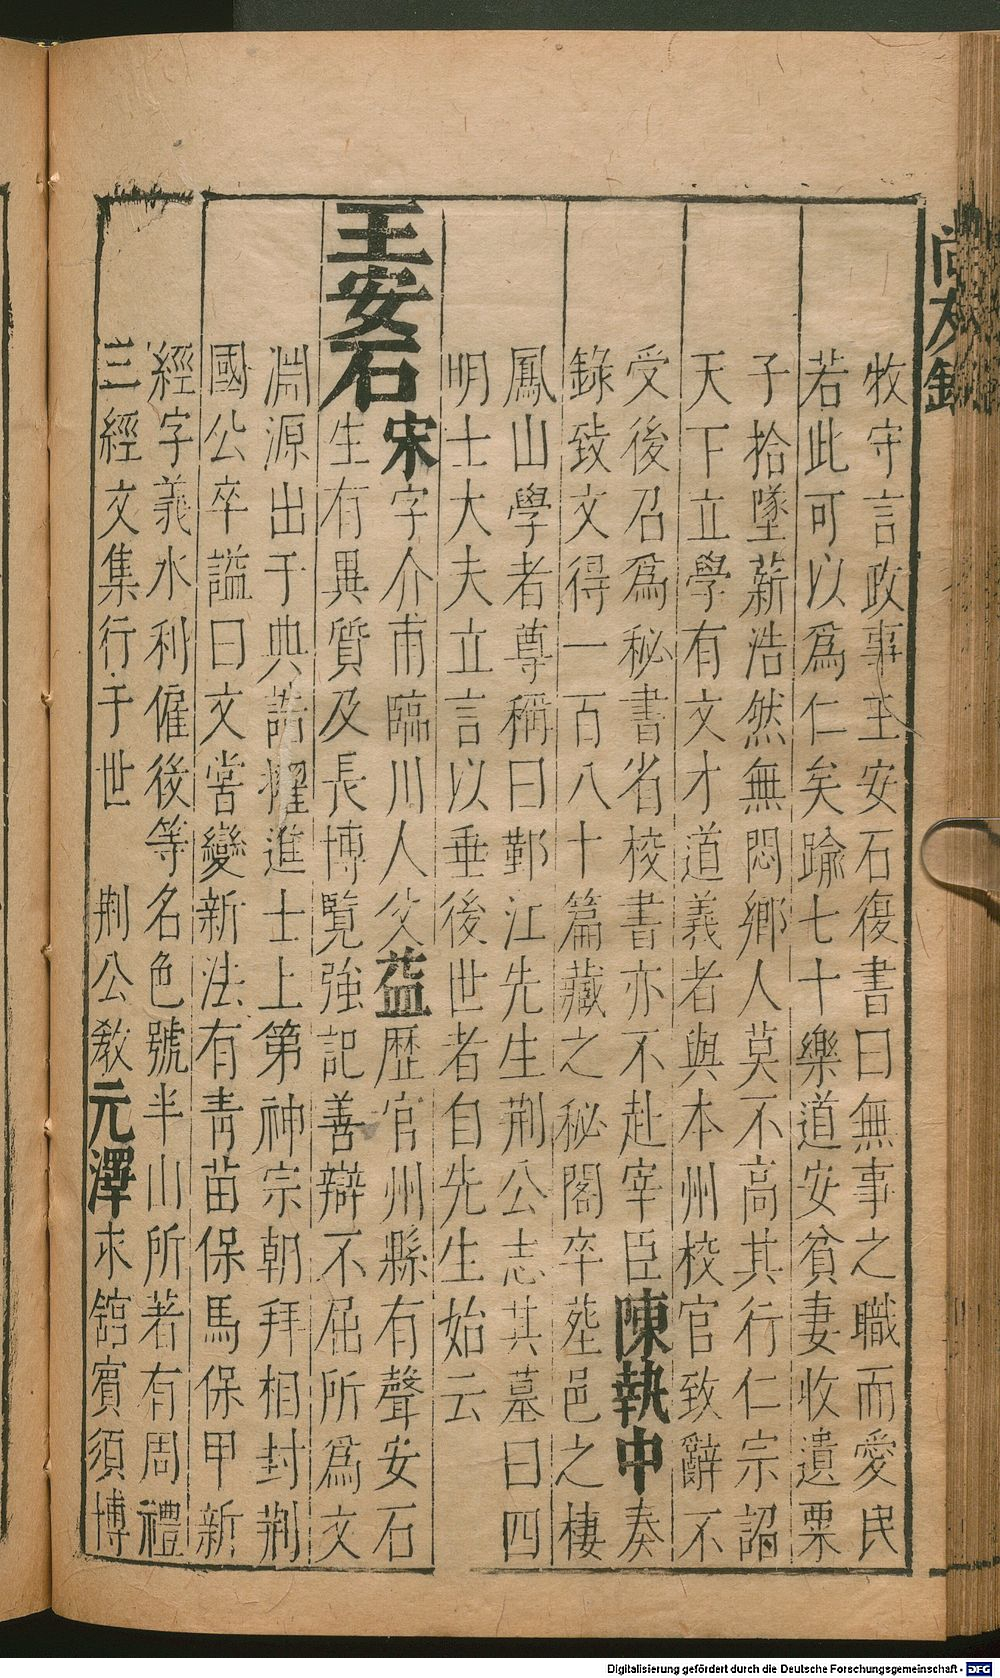 尚友錄
牧守言政事王安石復書曰無事之職而愛民
若此可以爲仁矣踰七十樂道安貧妻收遺栗
子拾墜薪浩然無悶鄉人莫不高其行仁宗詔
天下立學有文才道義者與本州校官致辭不
受後召爲秘書省校書亦不赴宰臣陳執中奏
錄致文得一百八十篇藏之秘閣卒葬邑之棲
鳳山學者尊稱曰鄞江先生荆公志其墓曰四
明士大夫立言以垂後世者自先生始云
王安石宋字介甫臨川人父益歷官州縣有聲安石
生有異質及長博覽強記善辯不屈所爲文
淵源出于典誥擢進士上第神宗朝拜相封荆
國公卒謚曰文嘗變新法有青苗保馬保甲新
經字義水利僱後等名色號半山所著有周禮
三經文集行于世 荆公教元澤求舘賓須博
Digitalisierung gefördert durch die Deutsche Forschungsgemeinschaft - DFG